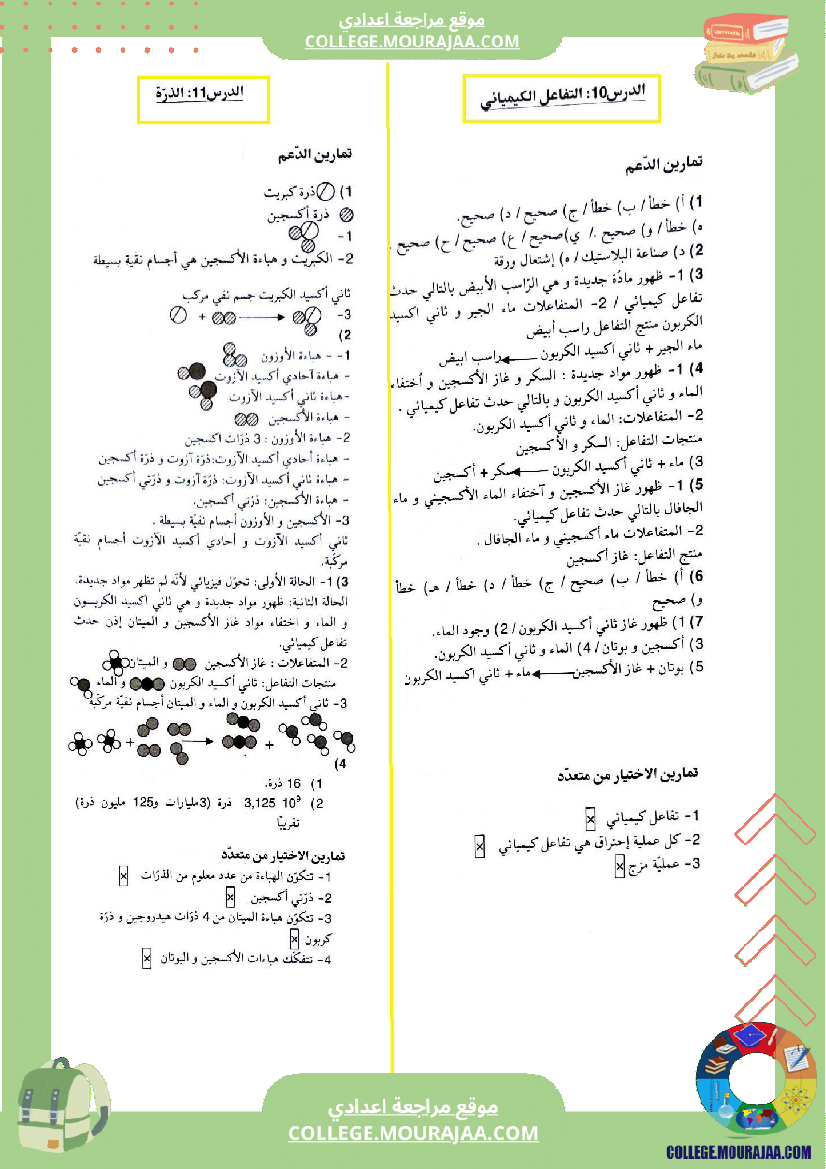 موقع مراجعة اعدادي
COLLEGE.MOURAJAA.COM
الدرس10: التفاعل الكيميائي
تمارين الدّعم
1) أ) خطأ / ب) خطأ / ج) صحيح / د) صحيح.
ه) خطأ / و) صحيح ./ ي)صحيح / ع) صحيح / ح) صحيح .
2) د) صناعة البلاستيك / ه) إشتعال ورقة
3) 1- ظهور مادّة جديدة و هي الرّاسب الأبيض بالتالي حدث
تفاعل كيميائي / 2- المتفاعلات ماء الجير و ثاني اكسيد
الكربون منتج التفاعل راسب أبيض
ماء الجير + ثاني اكسيد الكربون ← راسب ابيض
4) 1- ظهور مواد جديدة : السكر و غاز الأكسجين و أختفاء
الماء و ثاني أكسيد الكربون و بالتالي حدث تفاعل كيميائي .
2- المتفاعلات: الماء و ثاني أكسيد الكربون.
منتجات التفاعل: السكر و الأكسجين
3) ماء + ثاني أكسيد الكربون ← سكر + أكسجين
5) 1- ظهور غاز الأكسجين و آختفاء الماء الأكسجيني و ماء
الجافال بالتالي حدث تفاعل كيميائي.
2- المتفاعلات ماء أكسجيني و ماء الجافال .
منتج التفاعل: غاز أكسجين
6) أ) خطأ / ب) صحيح / ج) خطأ / د) خطأ / هـ) خطأ
و) صحيح
7) 1) ظهور غاز ثاني أكسيد الكربون / 2) وجود الماء.
3) أكسجين و بوتان / 4) الماء و ثاني أكسيد الكربون.
5) بوتان + غاز الأكسجين ← ماء + ثاني اكسيد الكربون
تمارين الاختيار من متعدّد
1- تفاعل كيميائي ×
2- كل عملية إحتراق هي تفاعل كيميائي ×
3- عمليّة مزج ×
الدرس11: الذرّة
تمارين الدّعم
1) ذرة كبريت
ذرة أكسجين
1-
2- الكبريت و هباءة الأكسجين هي أجسام نقية بسيطة
ثاني أكسيد الكبريت جسم نقي مركب
3- + →
2)
1- - هباءة الأوزون
- هباءة آحادي أكسيد الآزوت
-هباءة ثاني أكسيد الآزوت
- هباءة الأكسجين
2- هباءة الأوزون : 3 ذرّات اكسجين
- هباءة أحادي أكسيد الآزوت:ذرّة آزوت و ذرّة أكسجين
- هباءة ثاني أكسيد الآزوت: ذرّة آزوت و ذرّتي أكسجين
- هباءة الأكسجين: ذرّتي أكسجين.
3- الأكسجين و الأوزون أجسام نقيّة بسيطة .
ثاني اكسيد الآزوت و أحادي أكسيد الآزوت أجسام نقيّة
مركّبة.
3) 1- الحالة الأولى: تحوّل فيزيائي لأنّه لم تظهر مواد جديدة.
الحالة الثانية: ظهور مواد جديدة و هي ثاني اكسيد الكربون
و الماء و اختفاء مواد غاز الأكسجين و الميتان إذن حدث
تفاعل كيميائي.
2- المتفاعلات : غاز الأكسجين و الميتان
منتجات التفاعل: ثاني أكسيد الكربون و الماء
3- ثاني أكسيد الكربون و الماء و الميتان أجسام نقيّة مركّبة
+ → +
4)
1) 16 ذرة.
2) 3,125 10⁹ ذرة (3مليارات و125 مليون ذرة)
تقريبًا
تمارين الاختيار من متعدّد
1- تتكوّن الهباءة من عدد معلوم من الذرّات ×
2- ذرّتي أكسجين ×
3- تتكوّن هباءة الميتان من 4 ذرّات هيدروجين و ذرّة
كربون ×
4- تتفكّك هباءات الأكسجين و البوتان ×
موقع مراجعة اعدادي
COLLEGE.MOURAJAA.COM
COLLEGE.MOURAJAA.COM